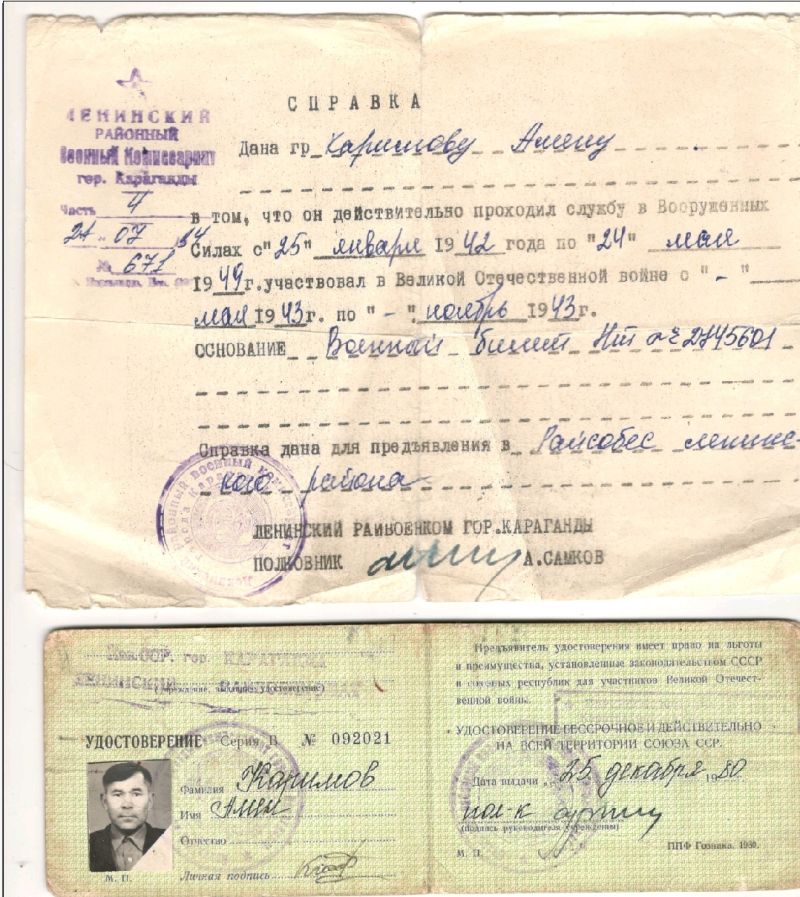 СПРАВКА
ЛЕНИНСКИЙ
РАЙОННЫЙ
Военный Комиссариат
гор. Караганды
Часть 4
21 " 07 84
№ 671
Дана гр Каримову Амену
в том, что он действительно проходил службу в Вооруженных
Силах с "25" января 1942 года по "24" мая
1949 г. участвовал в Великой Отечественной войне с " - "
мая 1943 г. по " - " ноябрь 1943 г.
ОСНОВАНИЕ Военный билет НП 2745601
Справка дана для предъявления в Райсобес ленинс-
кого района
ЛЕНИНСКИЙ РАЙВОЕНКОМ ГОР.КАРАГАНДЫ
ПОЛКОВНИК А.САМКОВ
ССР. гор. КАРАГАНДА
ЛЕНИНСКИЙ РАЙВОЕНКОМАТ
(учреждение, выдавшее удостоверение)
УДОСТОВЕРЕНИЕ Серия В № 092021
Фамилия Каримов
Имя Амен
Отчество
М. П. Личная подпись
Предъявитель удостоверения имеет право на льготы
и преимущества, установленные законодательством СССР
и союзных республик для участников Великой Отечест-
венной войны.
УДОСТОВЕРЕНИЕ БЕССРОЧНОЕ И ДЕЙСТВИТЕЛЬНО
НА ВСЕЙ ТЕРРИТОРИИ СОЮЗА ССР.
Дата выдачи " 25 декабря 1980
пол-к
(подпись руководителя учреждения)
М. П. ППФ Гознака. 1980.